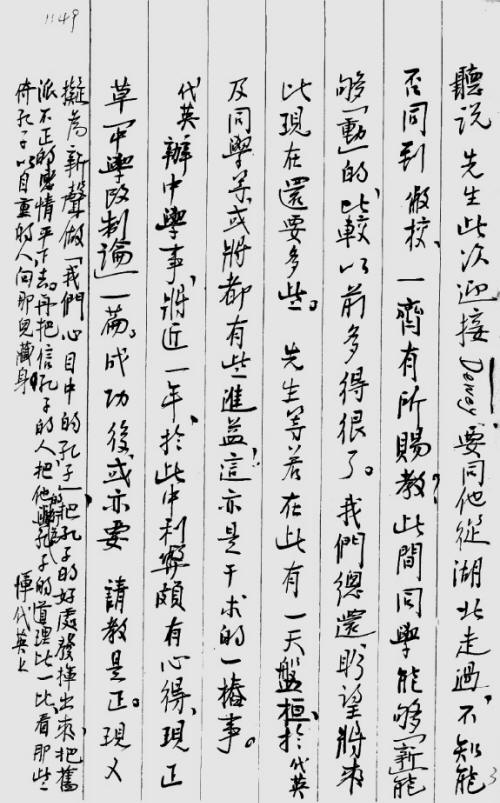 1149
聽説 先生此次迎接Dewey,要同他從湖北走過,不知能
否同到敝校,一齊有所賜教?此間同學能够「新」能
够「動」的,比較以前多得很了。我們總還盼望將來
比現在還要多些。 先生等若在此有一天盤桓,於代英
及同學等,或將都有些進益,這亦是千求的一樁事。
代英辦中學事,將近一年,於此中利弊頗有心得,現正
草「中學改制論」一篇。成功後,或亦要 請教是正。現又
擬為新聲做「我們心目中的孔子」,把孔子的好處發揮出來,把舊
派不正的感情平下去。再把信孔子的人,把他的孔子的道理比一比,看那些
侍孔子以自重的人,向那兒藏身。 惲代英上